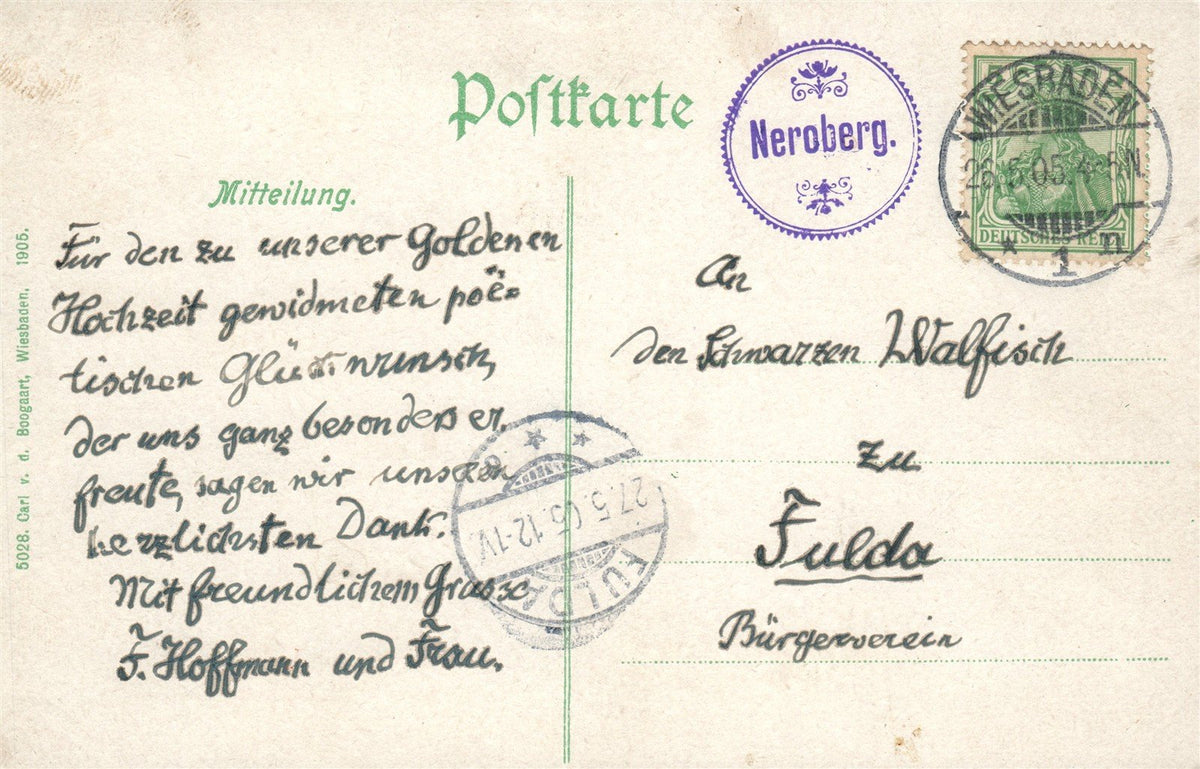 Postkarte
Neroberg.
WIESBADEN
26.5.05.4-5N.
* 1 n
DEUTSCHES REICH
Mitteilung.
Für den zu unserer Goldenen
Hochzeit gewidmeten poë-
tischen Glückwunsch,
der uns ganz besonders er-
freute, sagen wir unseren
herzlichsten Dank.
Mit freundlichem Grusse
F. Hoffmann und Frau.
An
den Schwarzen Walfisch
zu
Fulda
Bürgerverein
FULDA
27.5.05.12-1V.
5028. Carl v. d. Boogaart, Wiesbaden, 1905.